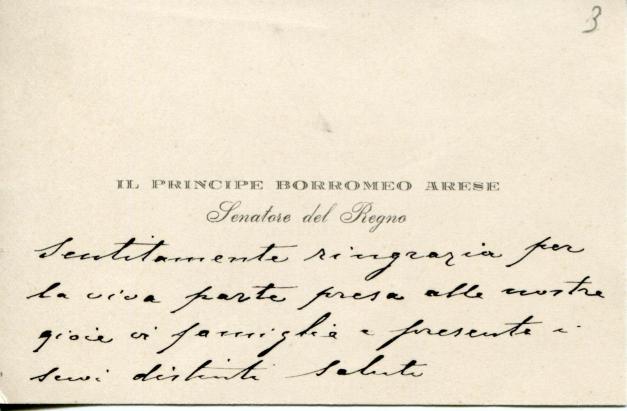 3
IL PRINCIPE BORROMEO ARESE
Senatore del Regno
sentitamente ringrazia per
la viva parte presa alle nostre
gioie di famiglia e presenta i
suoi distinti saluti